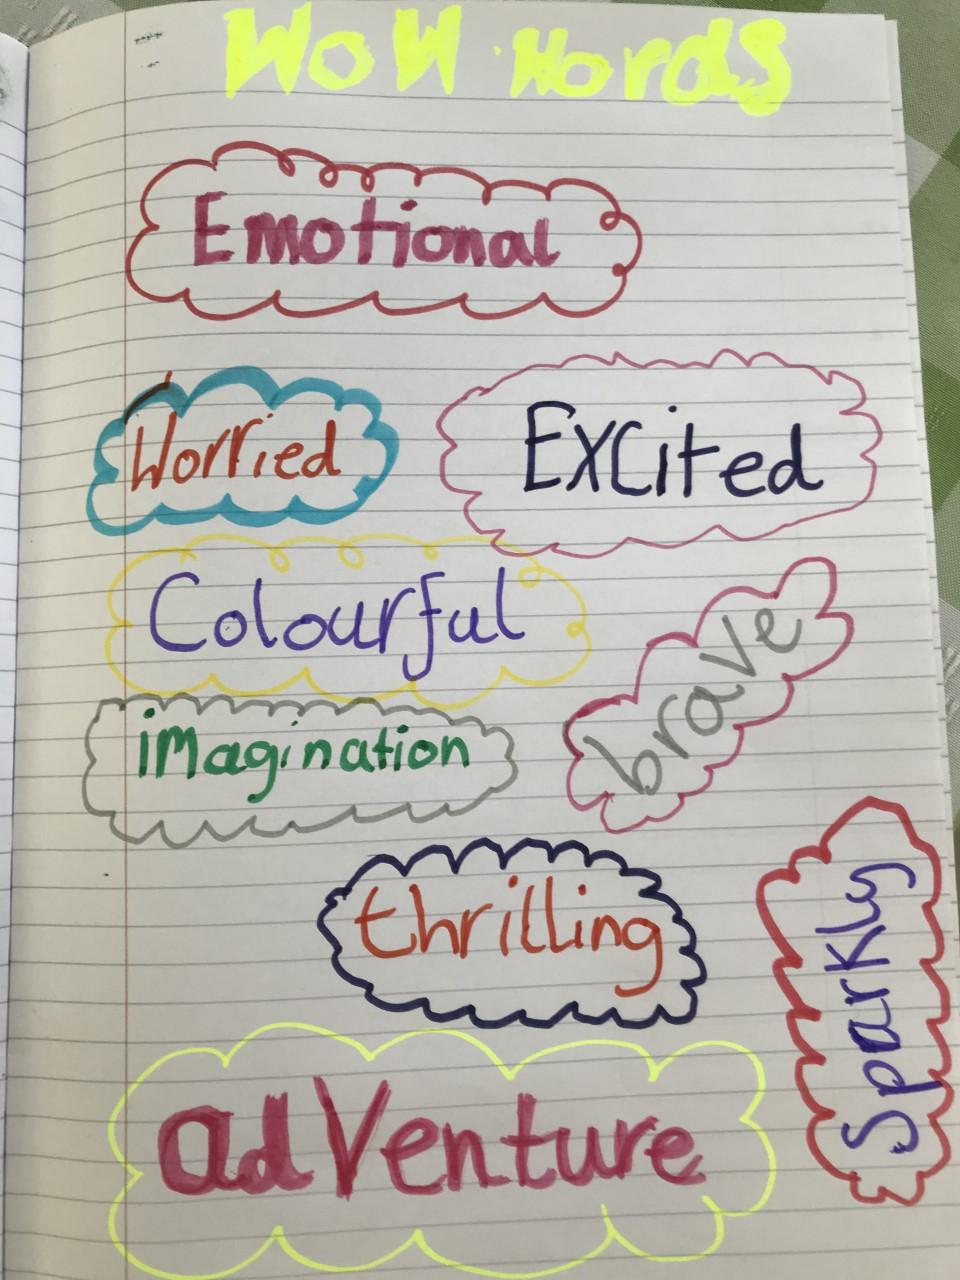 WoW Words
Emotional
Worried
EXCited
Colourful
brave
iMagination
thrilling
Sparkly
adVenture